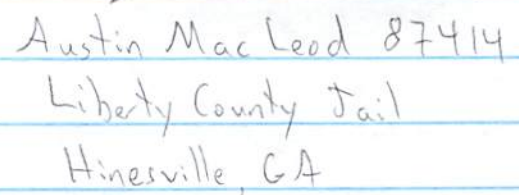 Austin Mac Leod 87414
Liberty County Jail
Hinesville, GA